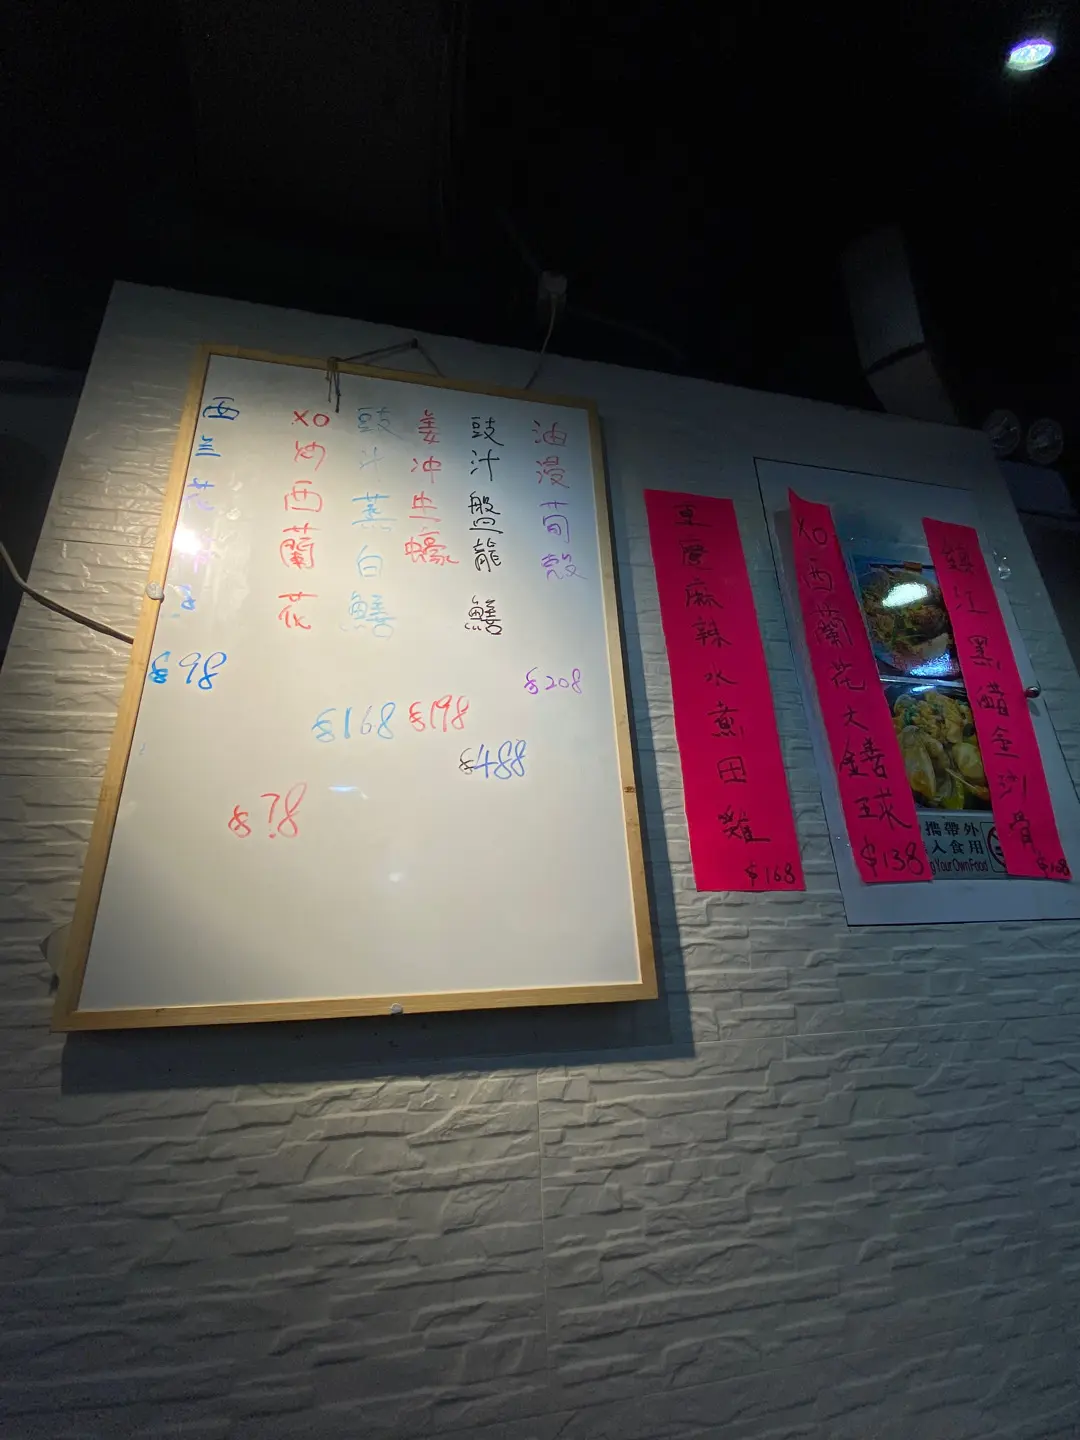 油浸筍殼
$208
豉汁盤龍鱔
$488
姜冲生蠔
$198
豉汁蒸白鱔
$168
XO炒西蘭花
$78
西兰花
$98
豆腐麻辣水煮田雞
$168
XO西蘭花大鱔球
$138
鎮江黑醋金沙骨
攜帶外
人食用
Your Own Food